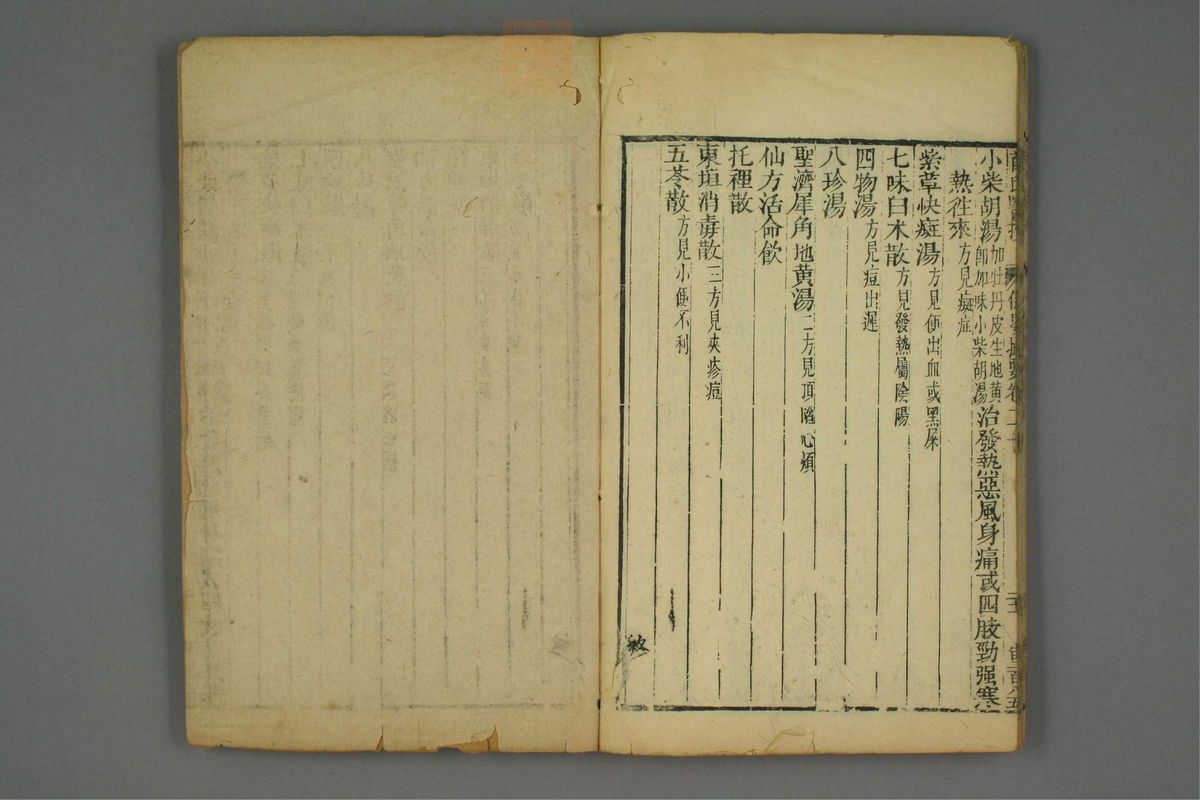 小柴胡湯加牡丹皮生地黄即加味小柴胡湯治發熱惡風身痛或四肢勁强寒
熱徃來方見癍症
紫草快癍湯方見便出血或黑屎
七味白术散方見發熱屬陰陽
四物湯方見痘出遲
八珍湯
聖濟犀角地黄湯二方見頂陷心煩
仙方活命飲
托裡散
東垣消毒散三方見夾疹痘
五苓散方見小便不利